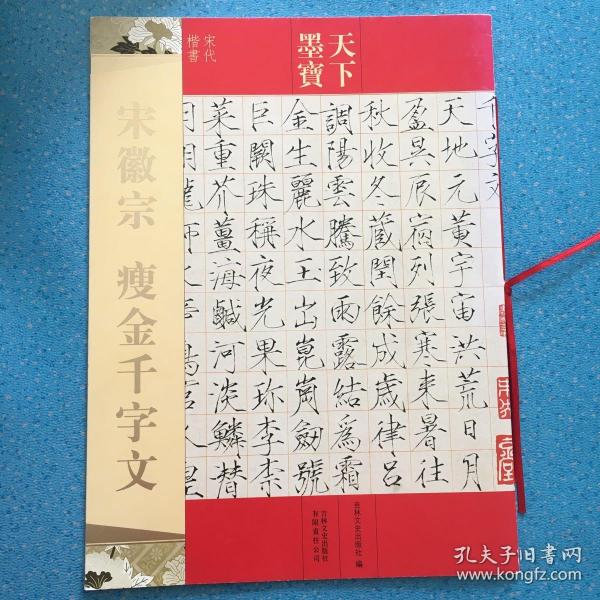 天下
墨寶
宋代
楷書
宋徽宗 瘦金千字文
千字文
天地元黃宇宙洪荒日月
盈昃辰宿列張寒来暑往
秋收冬藏閏餘成歲律呂
調陽雲騰致雨露結爲霜
金生麗水玉出崑崗劒號
巨闕珠稱夜光果珍李柰
菜重芥薑海鹹河淡鱗潛
吉林文史出版社 編
吉林文史出版社
有限責任公司
孔夫子旧书网
www.kongfz.com